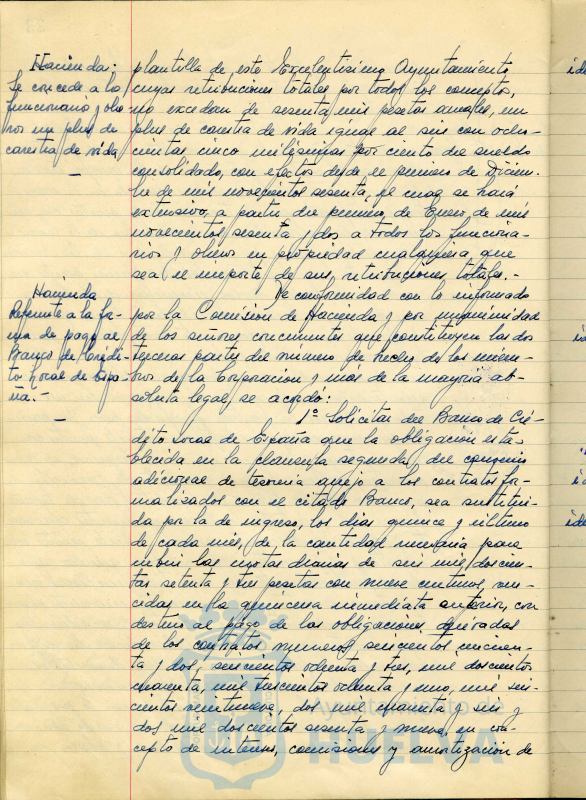 Hacienda:
Se concede a los
funcionarios y obre-
ros un plus de
carestía de vida
—
Hacienda
Referente a la for-
ma de pago al
Banco de Crédi-
to Local de Espa-
ña.-
—
plantilla de este Excelentísimo Ayuntamiento
cuyas retribuciones totales por todos los conceptos,
no excedan de sesenta mil pesetas anuales, un
plus de carestía de vida igual al seis con ocho-
cientas cinco milésimas por ciento del sueldo
consolidado, con efectos desde el primero de Diciem-
bre de mil novecientos sesenta, el cual se hará
extensivo, a partir del primero de Enero de mil
novecientos sesenta y dos a todos los funciona-
rios y obreros en propiedad cualquiera que
sea el importe de sus retribuciones totales.-
De conformidad con lo informado
por la Comisión de Hacienda y por unanimidad
de los señores concurrentes que constituyen las dos
terceras partes del número de hecho de los miem-
bros de la Corporación y más de la mayoría ab-
soluta legal, se acordó:
1º Solicitar del Banco de Cré-
dito Local de España que la obligación esta-
blecida en la clausula segunda del convenio
adicional de tesorería anejo a los contratos for-
malizados con el citado Banco, sea sustitui-
da por la de ingreso, los días quince y último
de cada mes, de la cantidad necesaria para
cubrir las cuotas diarias de seis mil doscien-
tas setenta y tres pesetas con nueve centimos, ven-
cidas en la quincena inmediata anterior, con
destino al pago de las obligaciones derivadas
de los contratos números, seiscientos cincuen-
ta y dos, seiscientos ochenta y tres, mil doscientos
cuarenta, mil trescientos ochenta y uno, mil seis-
cientos veintinueve, dos mil cuarenta y seis y
dos mil doscientos sesenta y nueve, en con-
cepto de intereses, comisiones y amortización de
Ayuntamiento de
HUELVA